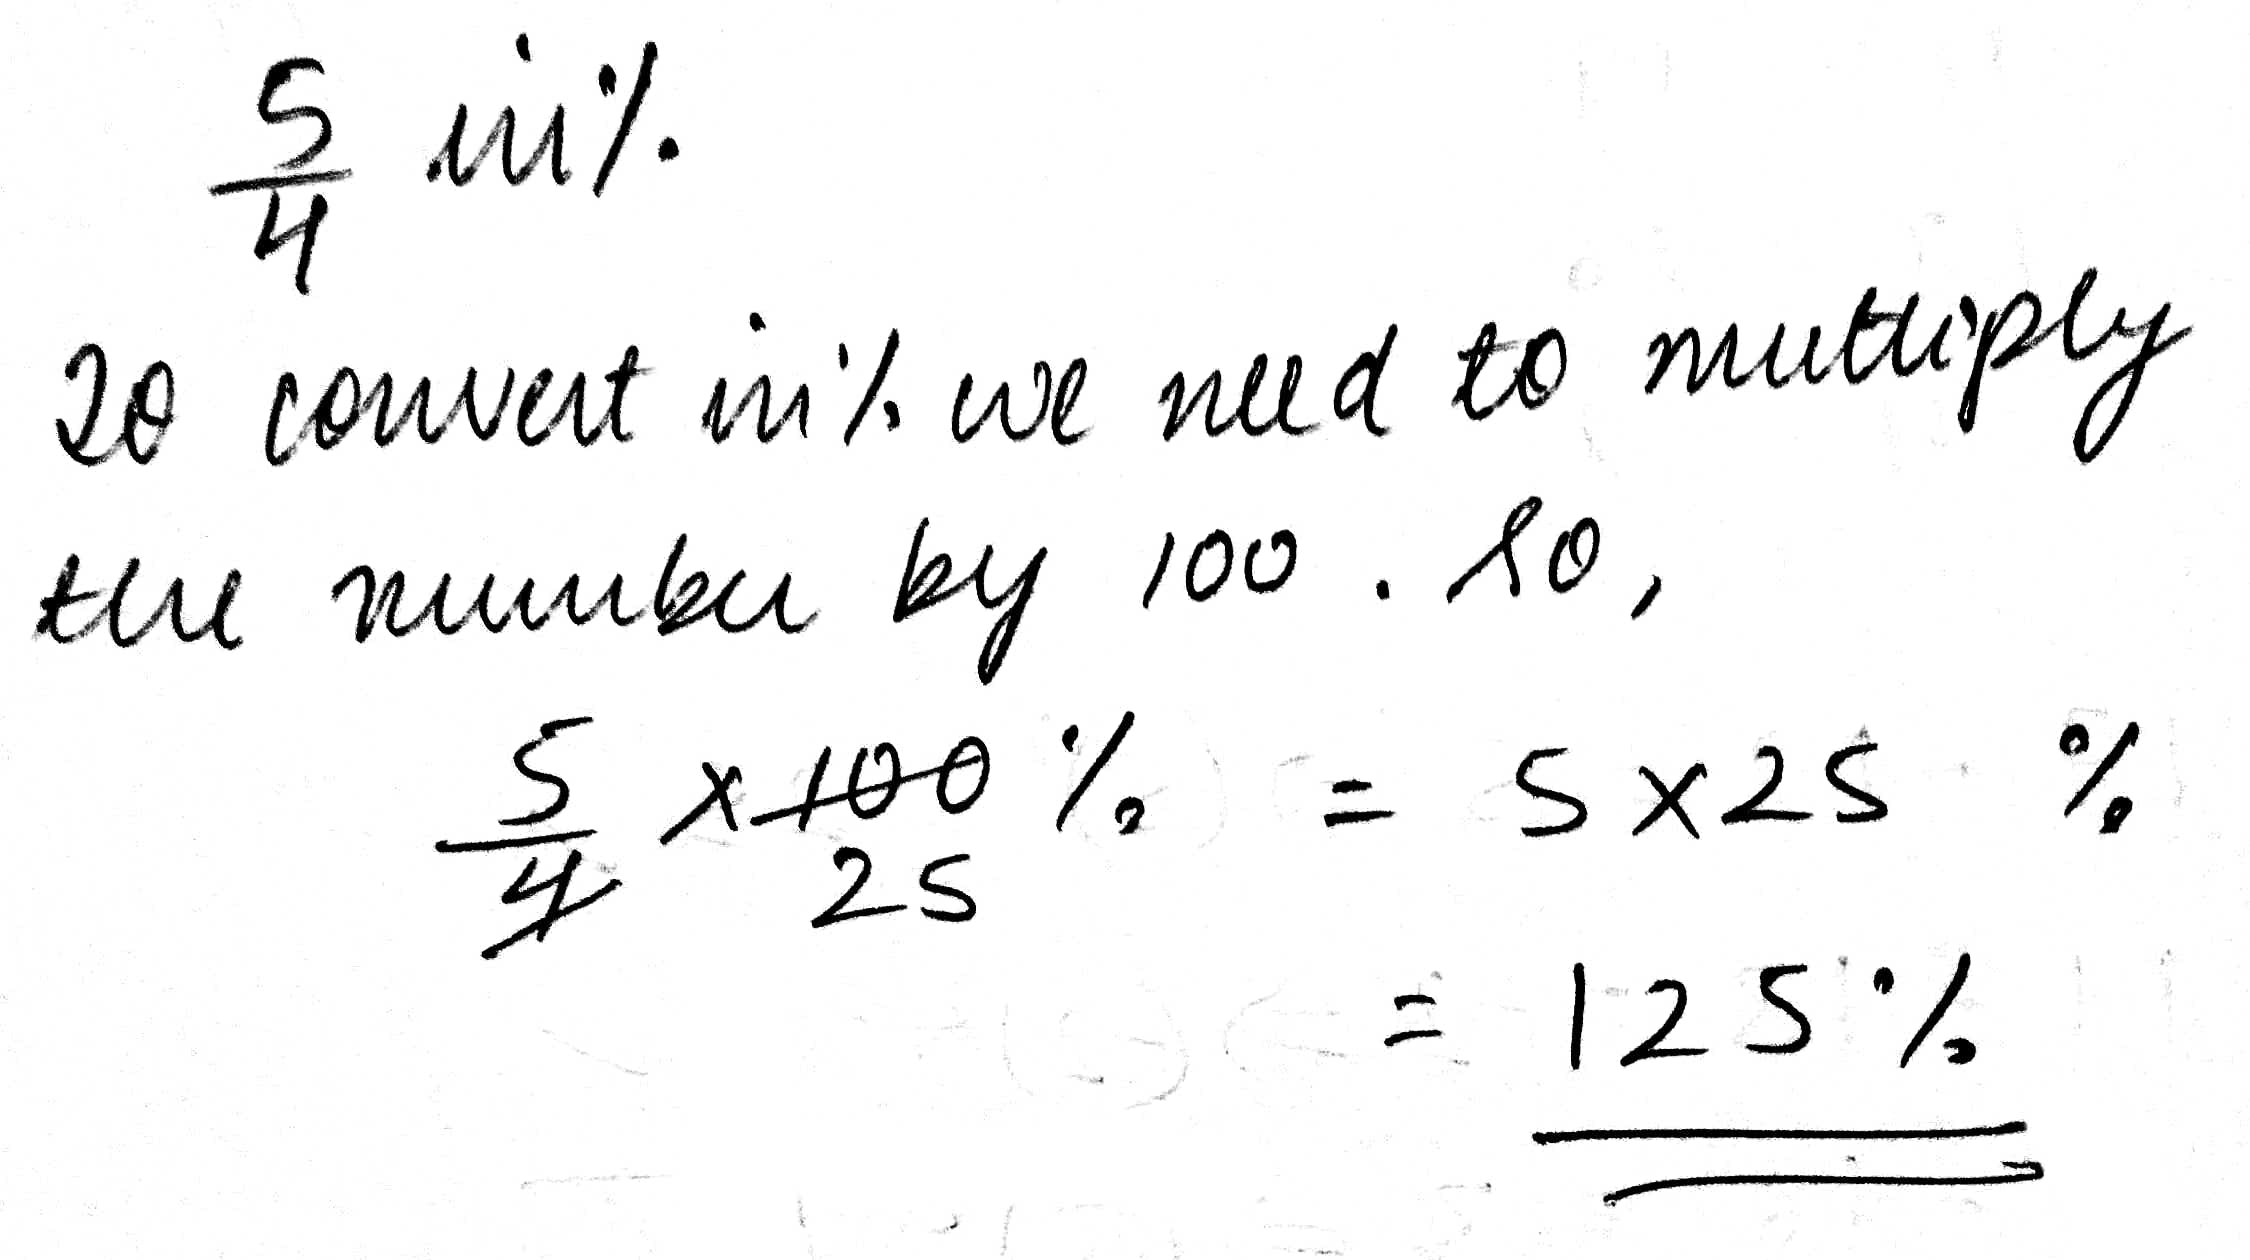 5/4 in %.
To convert in % we need to multiply
the number by 100. So,
5/4 × 100 % = 5 × 25 %
25
= 125 %